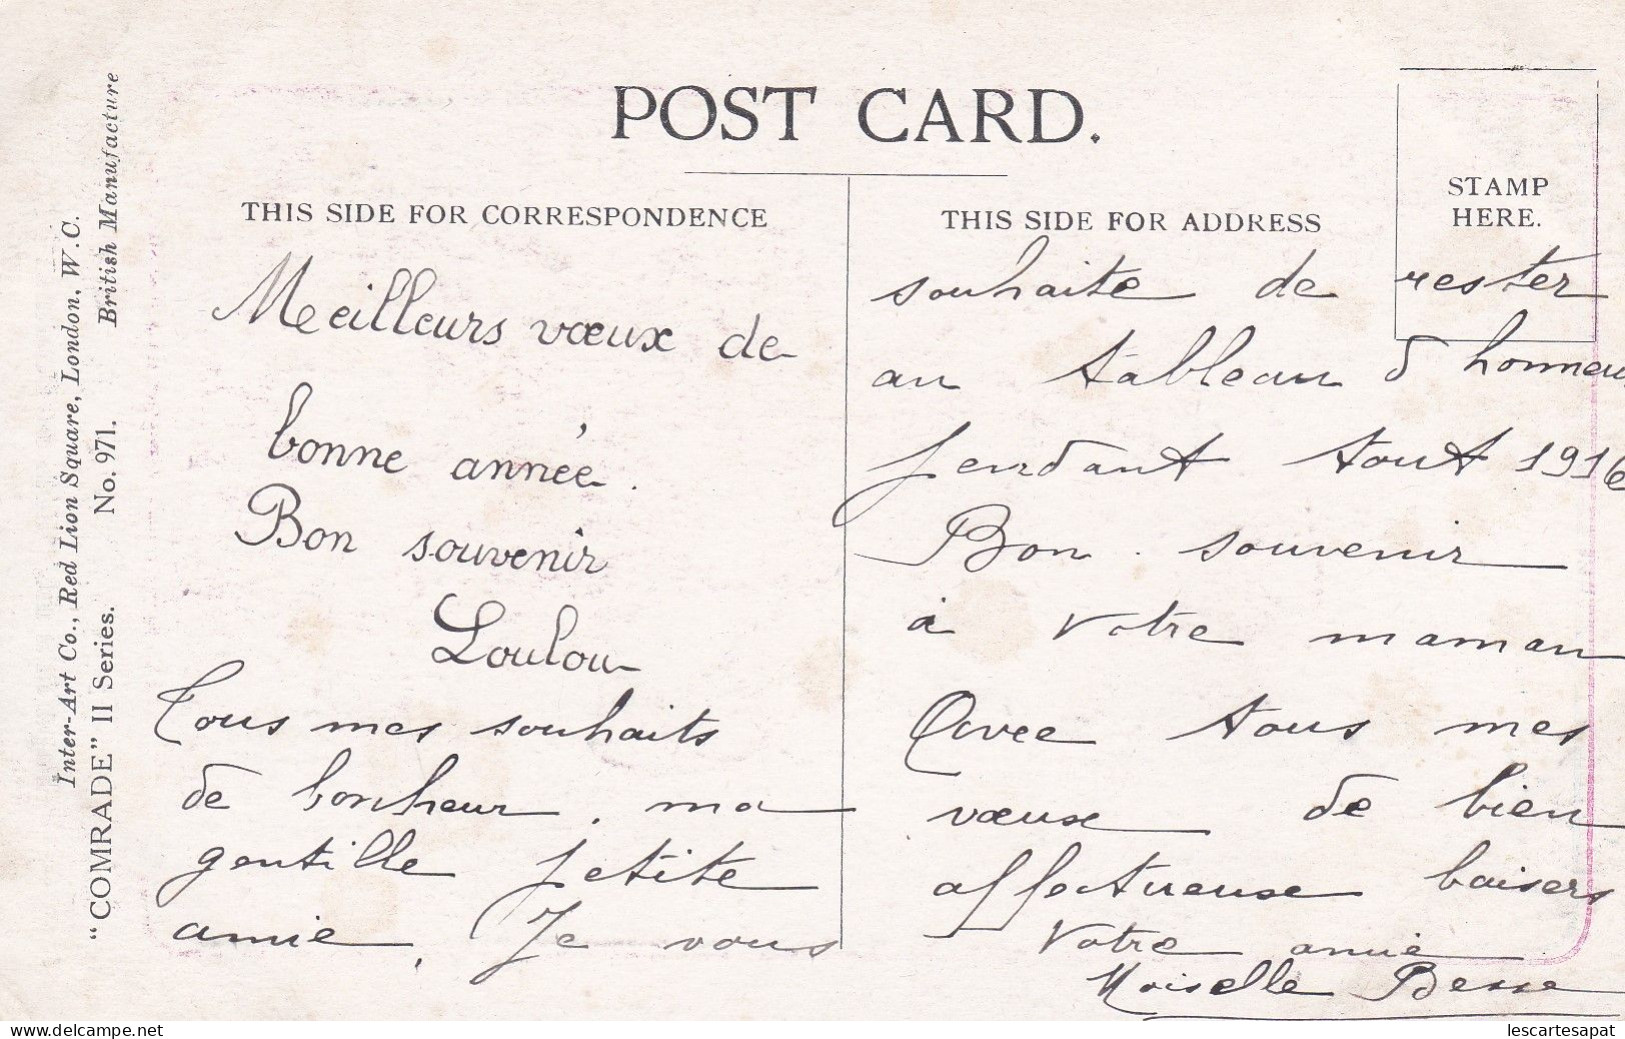 POST CARD.
THIS SIDE FOR CORRESPONDENCE
Meilleurs vœux de
bonne année.
Bon souvenir
Loulou
Tous mes souhaits
de bonheur, ma
gentille petite
amie, Je vous
THIS SIDE FOR ADDRESS
STAMP
HERE.
souhaite de rester
au tableau d honneur
pendant tout 1916
Bon souvenir
à votre maman
Avec tous mes
vœux de bien
affectueux baisers
Votre amie
Besse
Inter-Art Co., Red Lion Square, London, W.C.
"COMRADE" II Series. No. 971. British Manufacture
lescartesapat